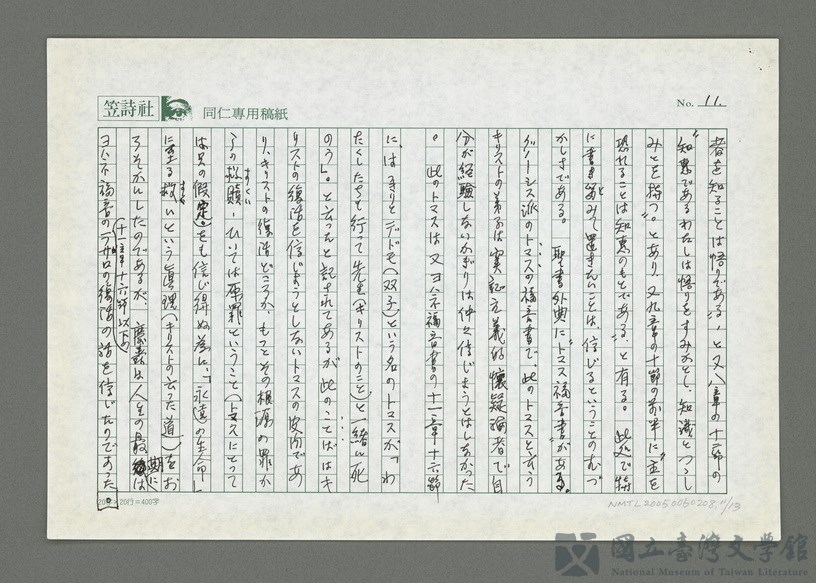 No. 11.
笠詩社 同仁専用稿紙
者を知ることは悟りである」と又八章の十二節の
"知恵であるわたしは悟りをすみかとし、知識とつつし
みとを持つ"。とあり、又九章の十節の前半に"主を
恐れることは知恵のもとである"、と有る。此処で特
に書き留めて置きたいことは、信じるということのむづ
かしさである。聖書外典に"トマス福音書"がある。
グノーシス派のトマスの福音書で此のトマスと云う
キリストの弟子は実証主義的懐疑論者で自
分が経験しないかぎりは仲々信じようとはしなかった
。此のトマスは又ヨハネ福音書の十一章十六節
に、はっきりとデドモ(双子)という名のトマスが「わ
たくしたちも行って先生(キリストのこと)と一緒に死
のう」。と云ったと記されてあるが此のことはキ
リストの復活を信じようとしないトマスの皮肉であ
り、キリストの復活どころか、もっとその根源の罪か
らの救贖、ひいては原罪ということ(トマスにとって
は兄の仮定)をも信じ得ぬ為に、「永遠の生命」
に至る救いという真理(キリストの云った道)をお
ろそかにしたのであるが、人生の最期には
ヨハネ福音のラザロの復活の話を信じたのであった。
(十一章十六節以下の)
20×20行=400字
NMTL20050050208, 11/13
國立臺灣文學館
National Museum of Taiwan Literature